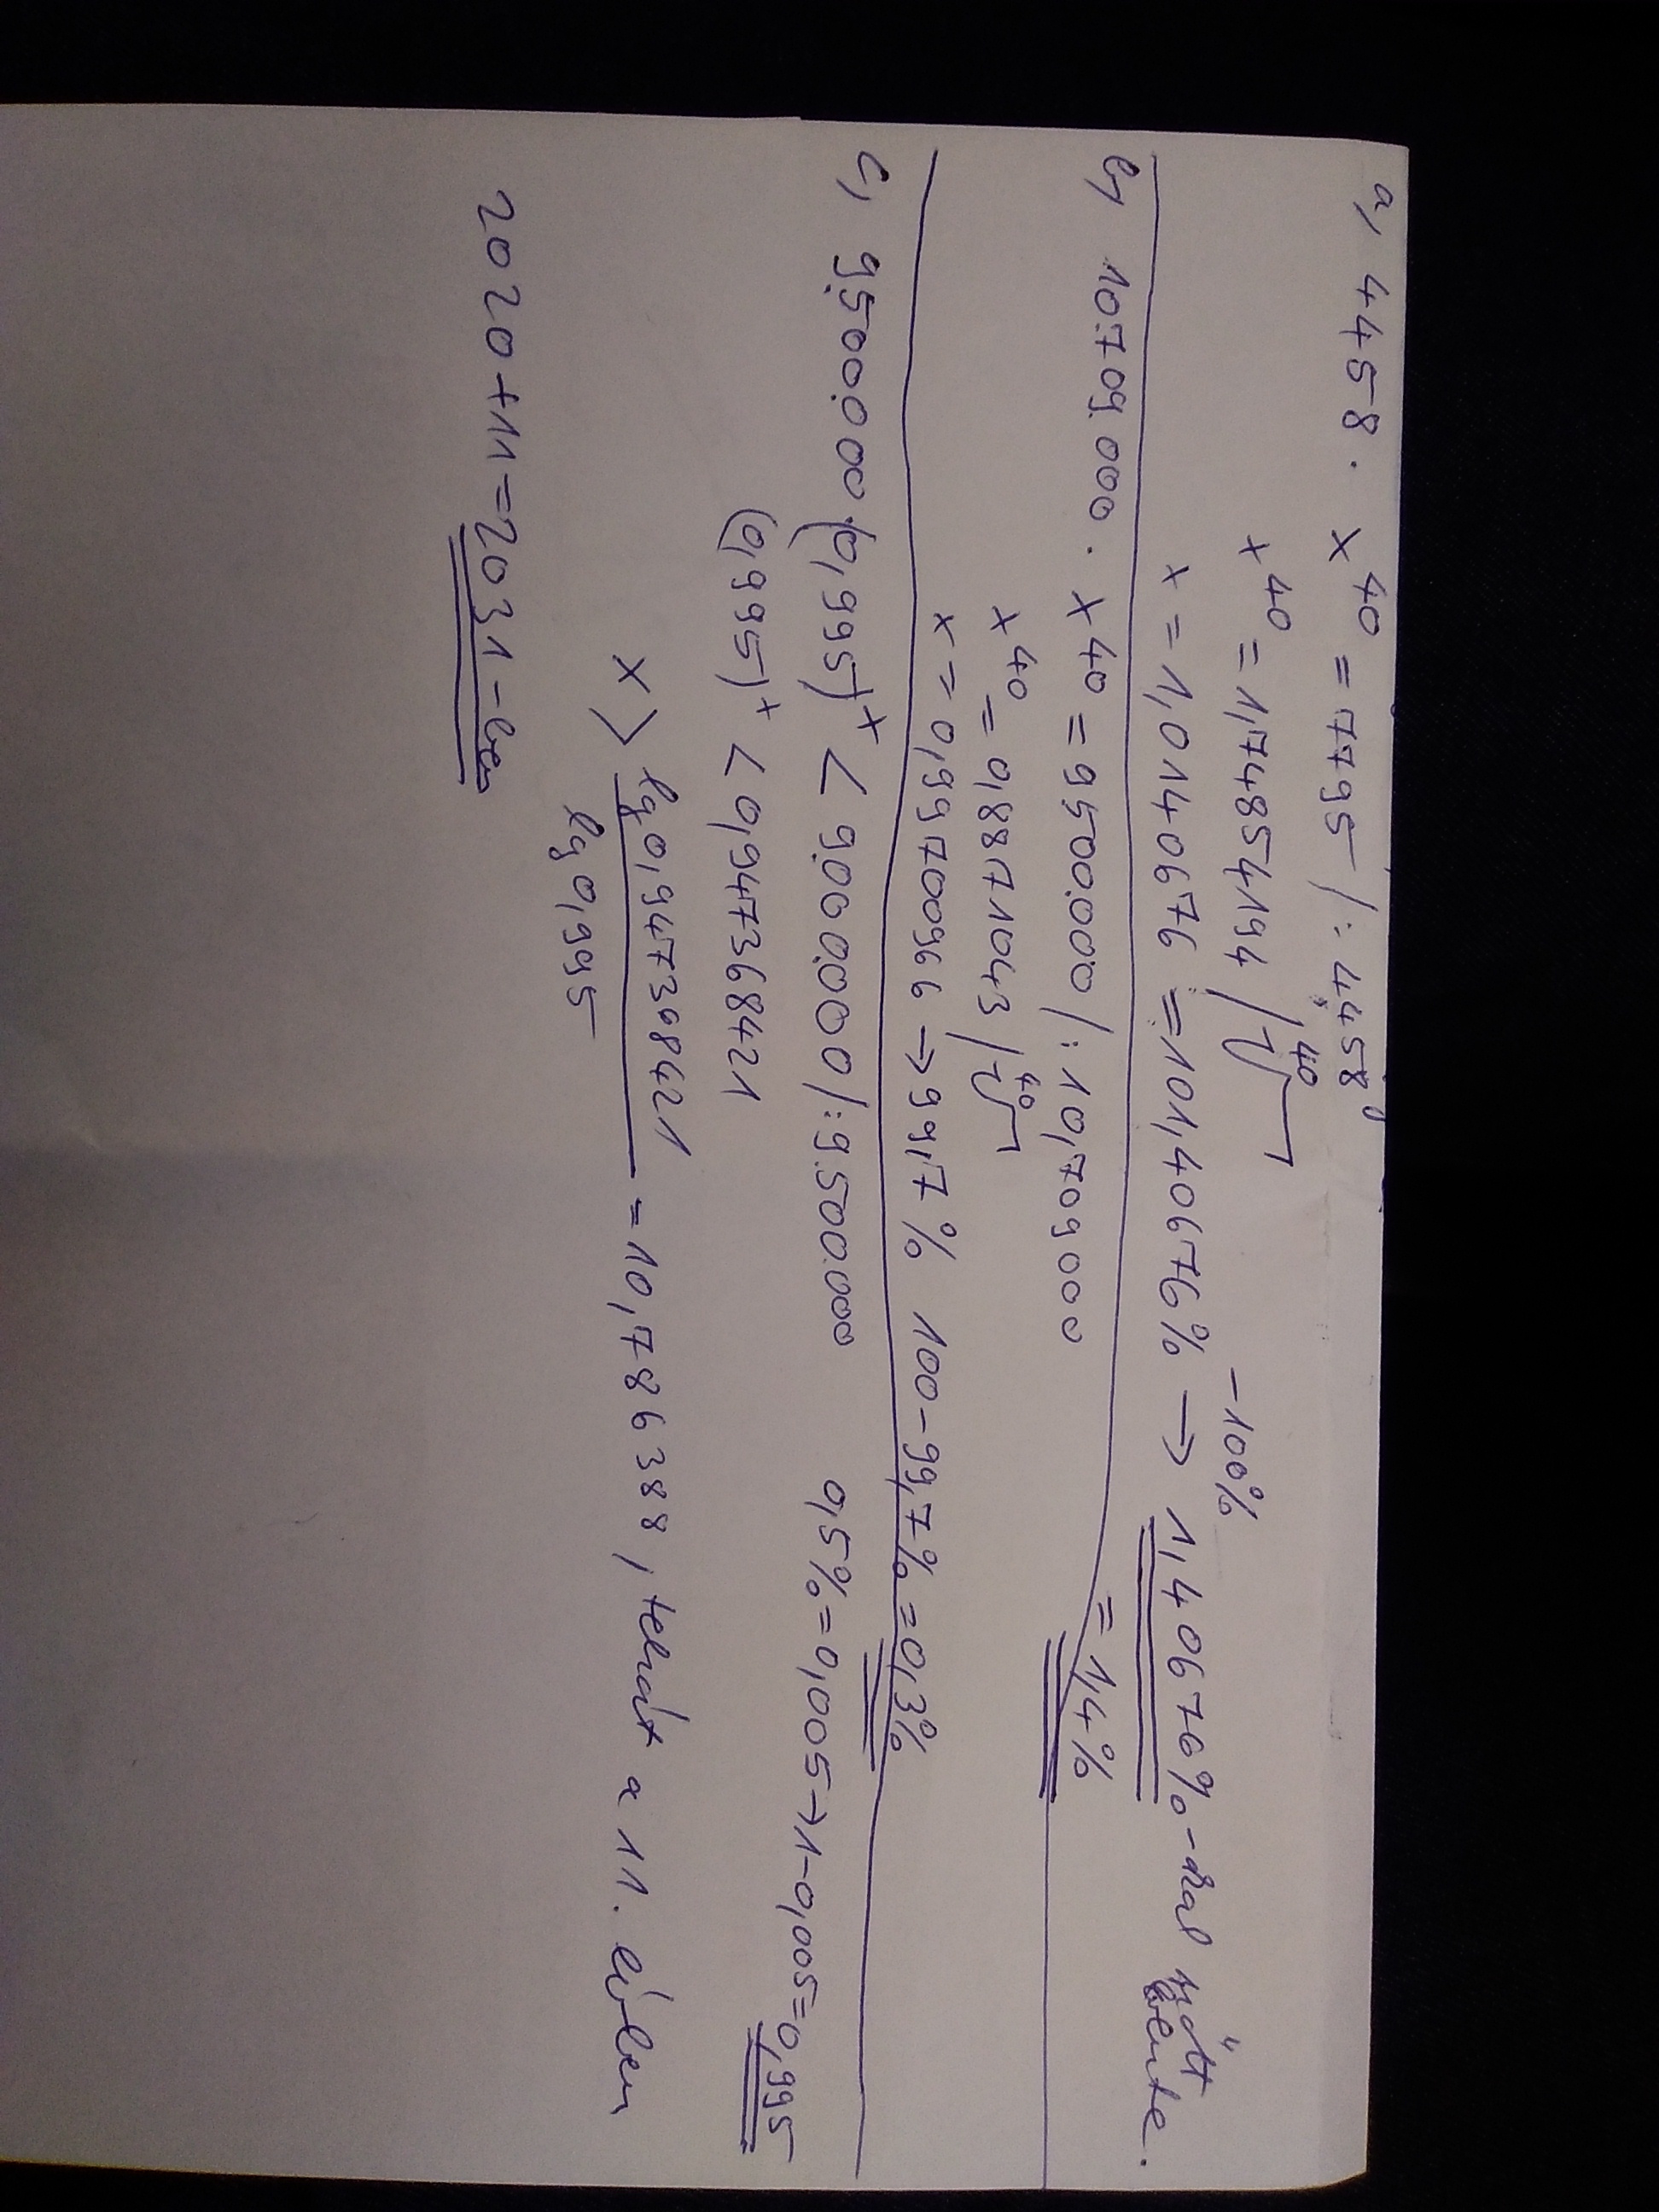 a, 4458 · x⁴⁰ = 7795 /: 4458
x⁴⁰ = 1,74854194 / ⁴⁰√
-100%
x = 1,0140676 = 101,40676% → 1,40676%-kal nőtt
évente.
= 1,4%
b, 10.709.000 · x⁴⁰ = 9.500.000 /: 10,709000
x⁴⁰ = 0,8871043 / ⁴⁰√
x = 0,99700966 → 99,7% 100-99,7% = 0,3%
c, 9.500.000 · (0,995)ˣ < 9.000.000 /: 9.500.000 0,5% = 0,005 → 1-0,005 = 0,995
(0,995)ˣ < 0,947368421
x > lg 0,9473698421 / lg 0,995 = 10,786388, tehát a 11. évben
2020+11=2031-ben